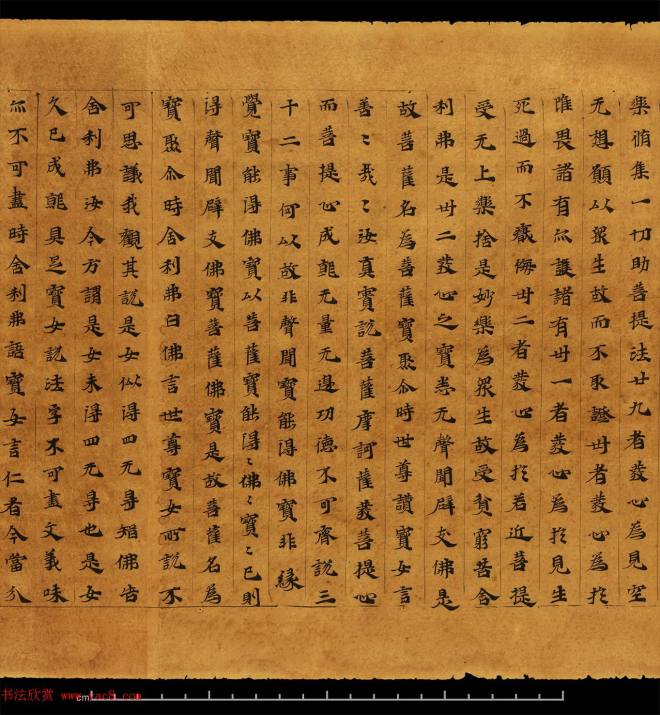 樂脩集一切助菩提法廿九者發心為見空
无想願以眾生故而不取證卅者發心為於
唯畏諸有亦護諸有卅一者發心為於見生
死過而不悔卅二者發心為於若近菩提
受无上樂捨是妙樂為眾生故受貧窮苦舍
利弗是卅二發心之寶悉无聲聞辟支佛是
故菩薩名為菩薩寶聚尒時世尊讚寶女言
善〻哉〻汝真實說菩薩摩訶薩發菩提心
而菩提心成就无量无邊功德不可齊說三
十二事何以故非聲聞寶能得佛寶非緣
覺寶能得佛寶以菩薩寶能得〻佛〻寶〻已則
得聲聞辟支佛寶菩薩佛寶是故菩薩名為
寶聚尒時舍利弗白佛言世尊寶女所說不
可思議我觀其說是女似得四无㝵智佛告
舍利弗汝今方謂是女未得四无㝵也是女
久已成就具足寶女說法字不可盡文義味
亦不可盡時舍利弗語寶女言仁者今當分
书法欣赏 www.yac8.com
cm